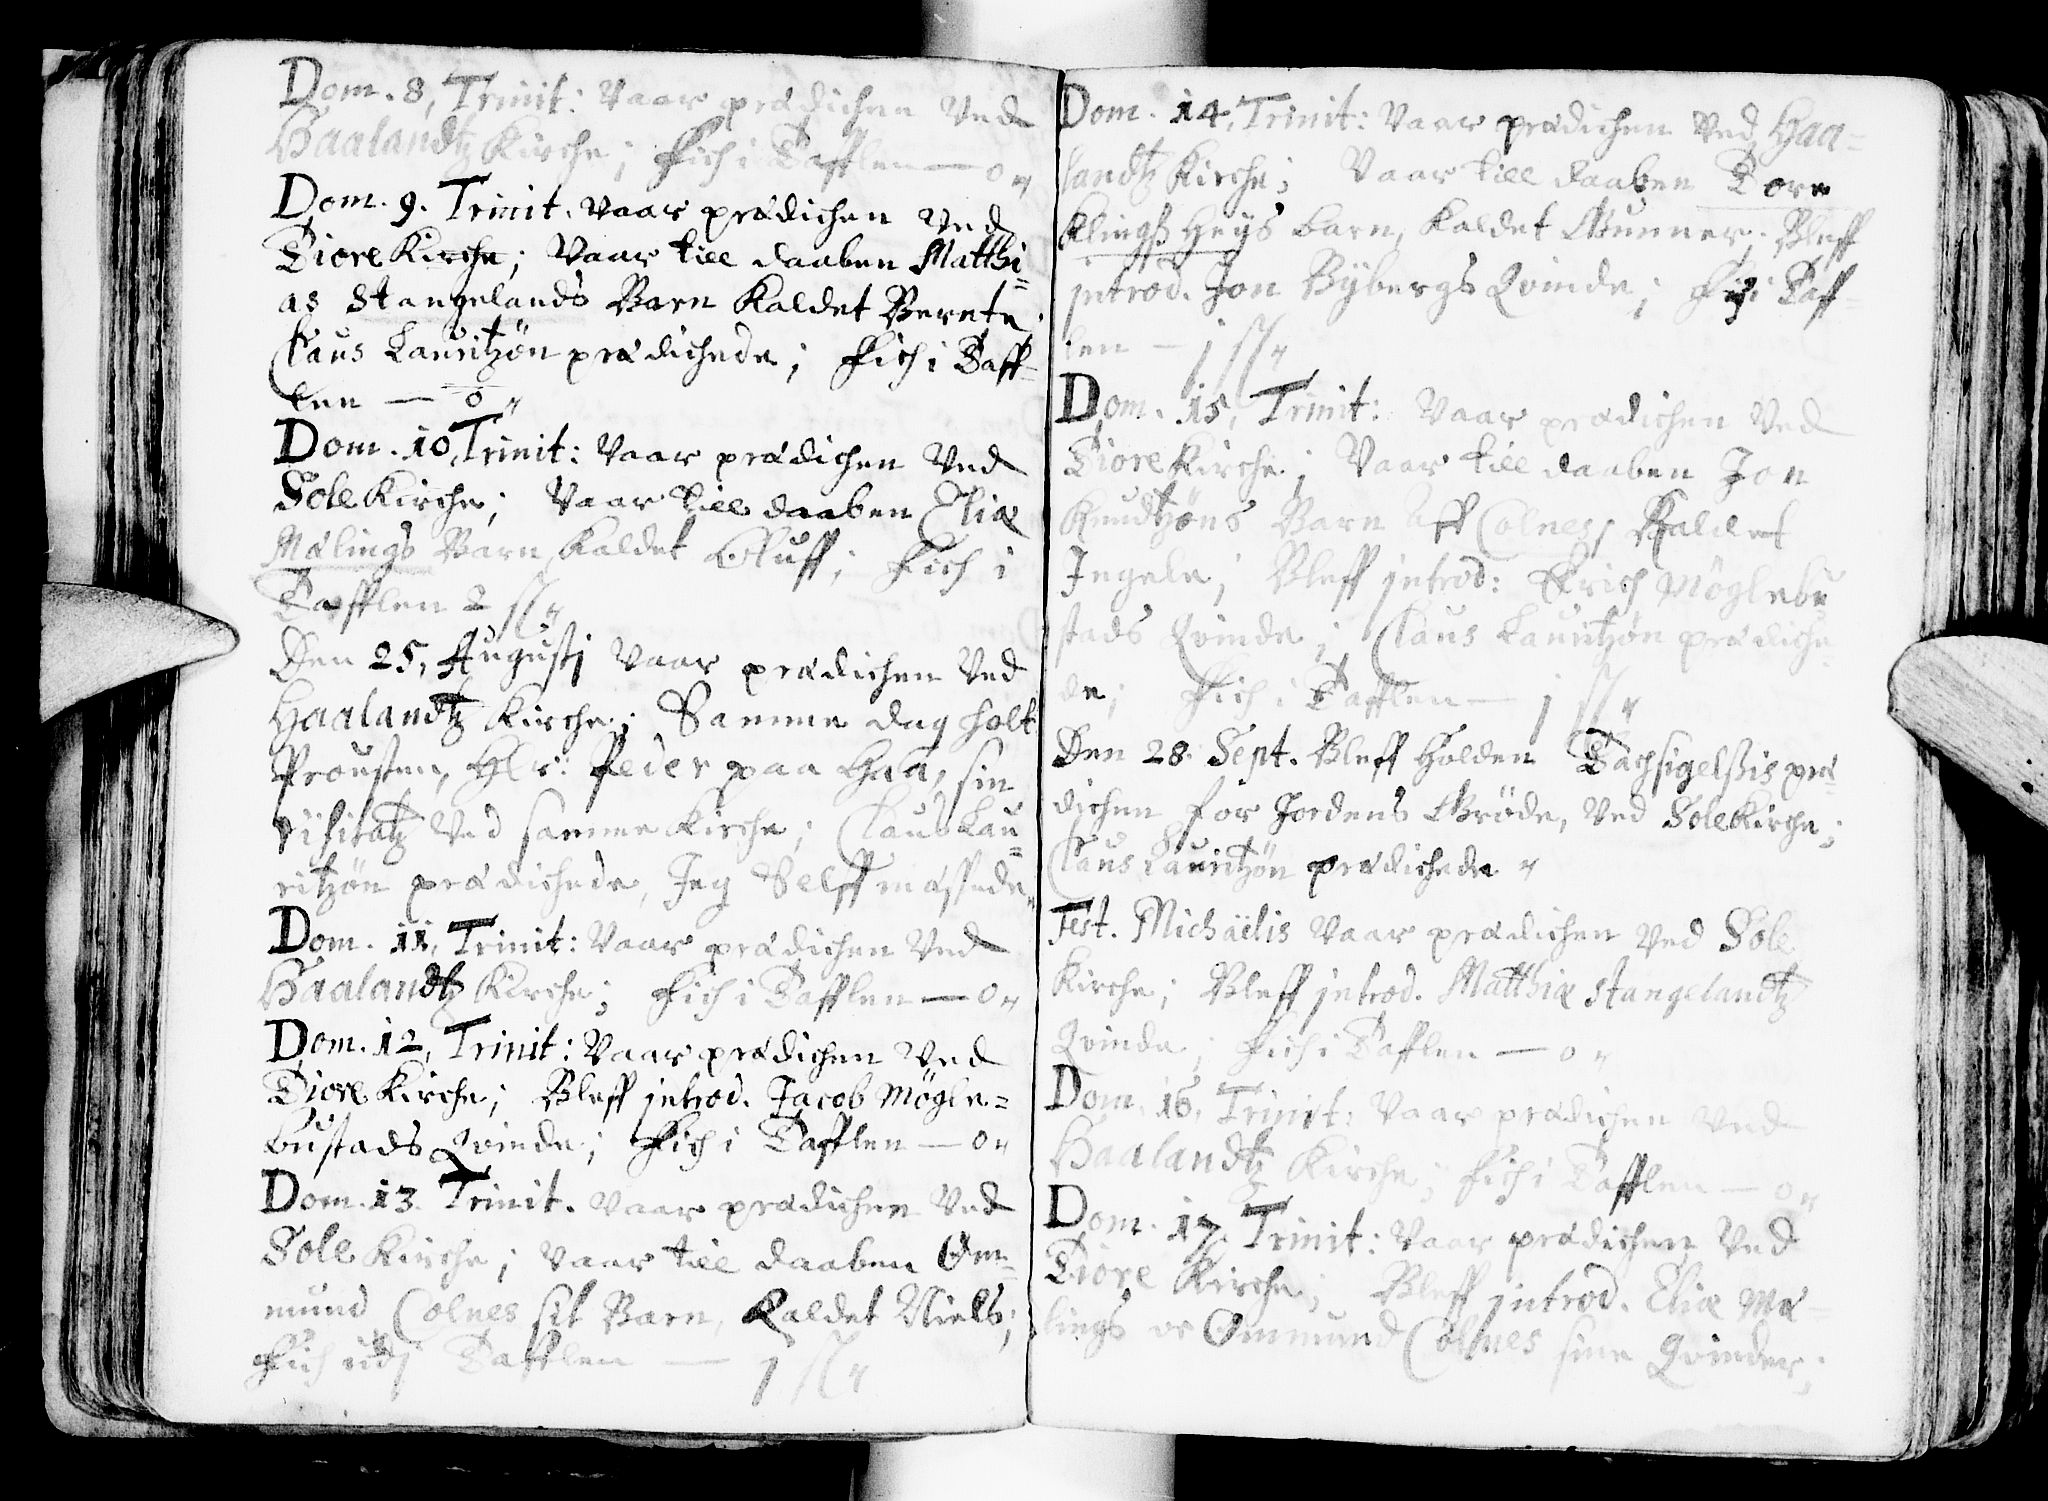 Dom. 8, Trinit: Vaar prædichen Ved
Haalandtz Kirche; Fich i Tafflen — 0 „
Dom. 9. Trinit. Vaar prædichen Ved
Tiore Kirche; Vaar till daaben Matthi=
as Stangelands Barn Kaldet Berete;
Claus Lauritzøn prædichede; Fich i Taff=
len — 0 „
Dom. 10, Trinit: Vaar prædichen Ved
Sole Kirche; Vaar till daaben Eliæ
Mælings Barn Kaldet Oluff; Fich i
Tafflen 2 ß „
Den 25, Augustj Vaar prædichen Ved
Haalandtz Kirche; Samme dag holt
Prousten, Hlr: Peder paa Haa, sin
Visitatz Ved samme Kirche; Claus Lau=
ritzøn prædichede, Jeg Selff messede „
Dom. 11, Trinit: Vaar prædichen Ved
Haalandtz Kirche; Fich i Tafflen — 0 „
Dom. 12, Trinit: Vaar prædichen Ved
Tiore Kirche; Bleff introd. Jacob Møgle=
bustads Qvinde; Fich i Tafflen — 0 „
Dom. 13. Trinit. Vaar prædichen Ved
Sole Kirche; Vaar till daaben Om=
mund Colnes sit Barn, Kaldet Niels;
Fich udj Tafflen — 1 ß „
Dom. 14, Trinit: Vaar prædichen Ved Haa=
landtz Kirche; Vaar till daaben Tore
Klingß Heÿs barn, Kaldet Gunner; Bleff
introd. Jon Bÿbergs Qvinde; Fich i Taf=
len — 1 ß „
Dom. 15, Trinit: Vaar prædichen Ved
Tiore Kirche; Vaar till daaben Jon
Knudtzøns Barn aff Colnes, Kaldet
Ingele; Bleff introd: Erich Møglebu
stads Qvinde; Claus Lauritzøn prædiche=
de; Fich i Tafflen — 1 ß „
Den 28. Sept. Bleff Holden Tachsigelßis præ=
dichen for Jordens Grøde, Ved Sole Kirche;
Claus Lauritzøn prædichede „
Fest. Michaëlis Vaar prædichen Ved Sole
Kirche; Bleff introd. Matthiæ Stangelandtz
Qvinde; Fich i Tafflen — 0 „
Dom. 16, Trinit: Vaar prædichen Ved
Haalandtz Kirche; Fich i Tafflen — 0 „
Dom. 17. Trinit: Vaar prædichen Ved
Tiore Kirche; Bleff introd. Eliæ Mæ=
lings oc Ommund Colnes sine Qvinder;